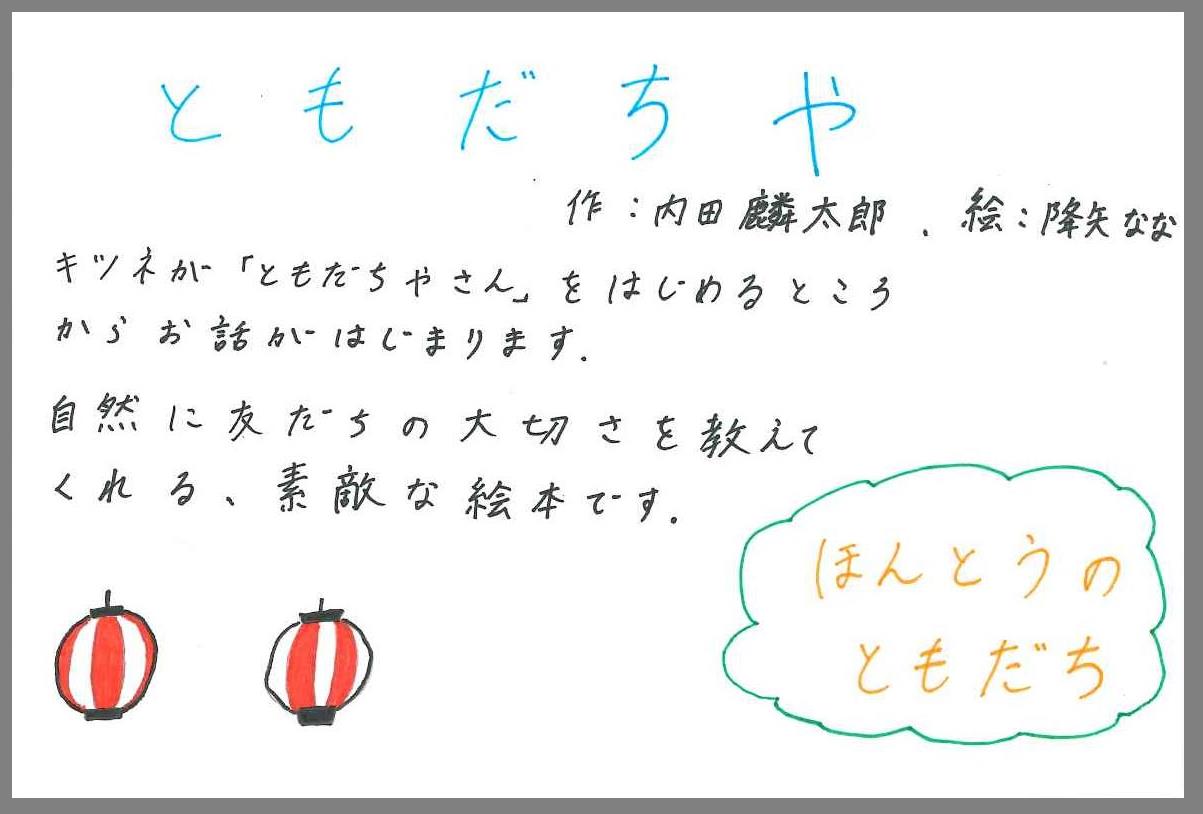 ともだちや
作：内田麟太郎、絵：降矢なな
キツネが「ともだちやさん」をはじめるところ
からお話がはじまります.
自然に友だちの大切さを教えて
くれる、素敵な絵本です.
ほんとうの
ともだち